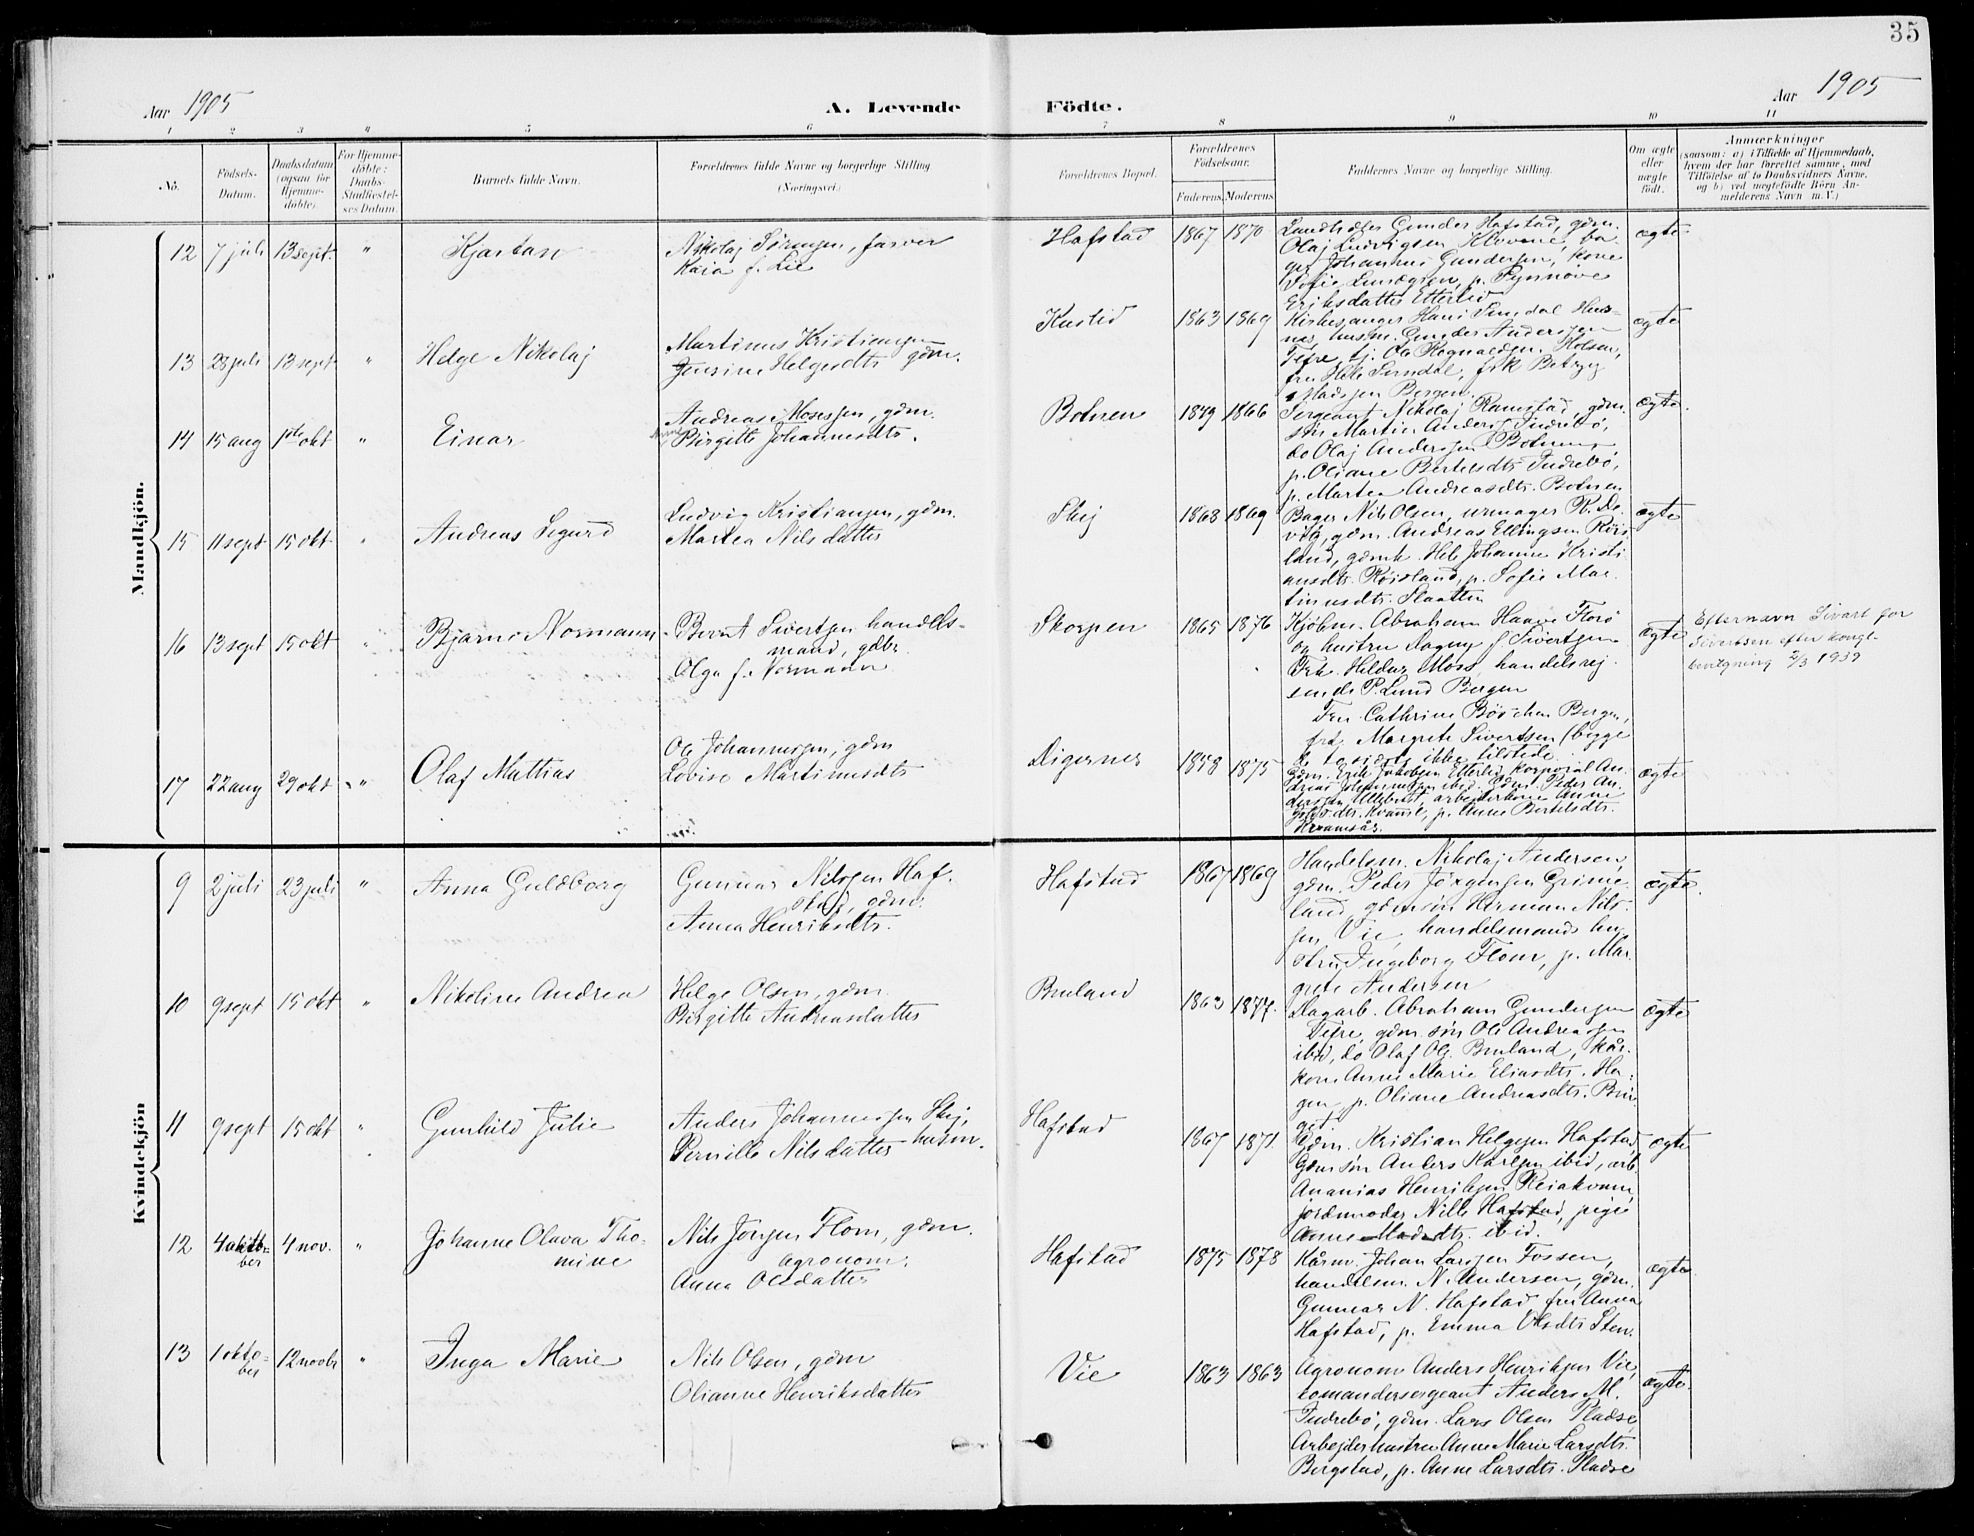 35
Aar 1905
A. Levende Födte.
Aar 1905
1 2 3 4 5 6 7 8 9 10 11
No.
Födsels-
Datum.
Daabsdatum
(ogsaa for
Hjemme-
døbte).
For Hjemme-
döbte:
Daabs-
Stadfæstel-
ses Datum.
Barnets fulde Navn.
Forældrenes fulde Navne og borgerlige Stilling
(Næringsvei.)
Forældrenes Bopæl.
Forældrenes
Födselsaar.
Faderens. Moderens.
Faddernes Navne og borgerlige Stilling.
Om ægte
eller
uægte
födt.
Anmærkninger
(saasom: a) i Tilfælde af Hjemmedaab,
hvem der har forrettet samme, med
Tilföielse af to Daabsvidners Navne,
og b) ved uægtefödte Börn An-
melderens Navn m. V.)
Mandkjön.
12 7 juli 13 sept. " Kjartan
Nikolaj Sörensen, farver
Kaia f. Lie
Hafstad 1867 1870
Landhdlr Gunder Hafstad, gdm.
Olaj Ludvigsen Klovene, ba-
ger Johannes Gundersen, kone
Sofie, p. Synnöve
Eriksdatter Etterlid
ægte
13 23 juli 13 sept " Helge Nikolaj
Martinus Kristiansen
Jensine Helgesdtr gdm.
Kusted 1863 1869
Kirkesanger Hans Sunndal Hus-
nes, husm. Gunder Andersen
Tefre, tj. Ole Ragnaldsen Kolsen,
fru Hele Sunndal, frk Betzy
Madssen Bergen.
ægte
14 15 aug 1ste okt " Einar
Andreas Mosessen, gdm.
Birgitte Johannesdtr.
Botnen 1849 1866
Sergeant Nikolaj Ramstad, gdm.
sön Martin Anders Indrebö,
do Olaj Anderssen Botnen,
p. Oliane Bertelsdtr Indrebö,
p. Martea Andreasdtr. Botnen
ægte
15 11 sept 15 okt " Andreas Sigurd
Ludvig Kristiansen, gdm.
Martea Nilsdatter
Skej 1868 1869
Bager Nils Olsen, urmager R. De-
vig, gdm. Andreas Ellingsen Röis-
land, gdmk. Hele Johanne Kristi-
ansdtr. Röisland, p. Sofie Mar-
tinusdtr. Slaatten
ægte
16 13 sept 15 okt " Bjarne Normann
Bernt Sivertsen handels-
mand, gdbr.
Olga f. Normann
Skorpen 1865 1876
Kjöbm. Abraham Haave Florö
og hustru Dagny f. Sivertsen
Frk. Hildur Moss, handelsrej-
sende P. Lund Bergen
Fru Cathrine Böschen Bergen,
frk. Margrete Sivertsen (begge
de to sidste ikke tilstede
ægte
Efternavn Sivart for
Sivertsen efter kongl.
bevilgning 2/3 1939
17 22 aug 29 okt " Olaf Mattias
Ole Johannessen, gdm
Lovise Martinusdtr
Digernes 1858 1875
Gdm. Erik Jakobsen Etterlid, korporal An-
dreas Johannessen ibid. Gdm. Peder An-
derssen Ullebust, arbejderkone Anne
Kvamse, p. Anne Bertelsdtr.
Kvamsås.
ægte
Kvindekjön
9 2 juli 23 juli " Anna Guldborg
Gunnar Nilssen Haf-
stad, gdm.
Anna Henriksdtr.
Hafstad 1867 1869
Handelsm. Nikolaj Andersen,
gdm. Peder Jörgensen Grime-
land, gdmsön Herman Nils-
sen Vie, handelsmands hu-
stru Ingeborg Flom, p. Mar-
grete Andersen
ægte.
10 9 sept 15 okt " Nikoline Andrea
Helge Olsen, gdm.
Birgitte Andreasdatter
Bruland 1863 1877.
Dagarb. Abraham Gundersen
Tefre, gdm. sön Ole Andreassen
ibid, do Olaf Ols. Bruland, kår-
kone Anne Marie Eliasdtr. Ha-
gen, p. Oliane Andreasdtr. Brin-
git.
ægte
11 9 sept 15 okt " Gunhild Julie
Anders Johannessen Skej,
Pernille Nilsdatter husm.
Hafstad 1867 1871.
Gdm. Kristian Helgesen Hafstad,
Gdmsön Anders Karlsen ibid, arb.
Ananias Henriksen Reiakvam,
jordmoder Nille Hafstad, pige
Anne Madsdtr. ibid.
ægte
12 4 okto-
ber 4 nov. " Johanne Olava Tho-
mine
Nils Jörgen Flom, gdm.
agronom.
Anna Olsdatter
Hafstad 1875 1878
Kårm. Johan Larssen Fossen,
handelsm. N. Andersen, gdm.
Gunnar N. Hafstad, fru Anna
Hafstad, p. Emma Olsdtr Sten.
ægte.
13 1 okto-
ber 12 novbr " Inga Marie
Nils Olsen, gdm
Olianne Henriksdatter
Vie 1863 1863
Agronom Anders Henriksen Vie,
komandersergeant Anders M.
Indrebö, gdm. Lars Olsen Pladse,
Arbejderhustru Anne Marie Larsdtr.
Bergstad, p. Anne Larsdtr. Pladse
ægte.